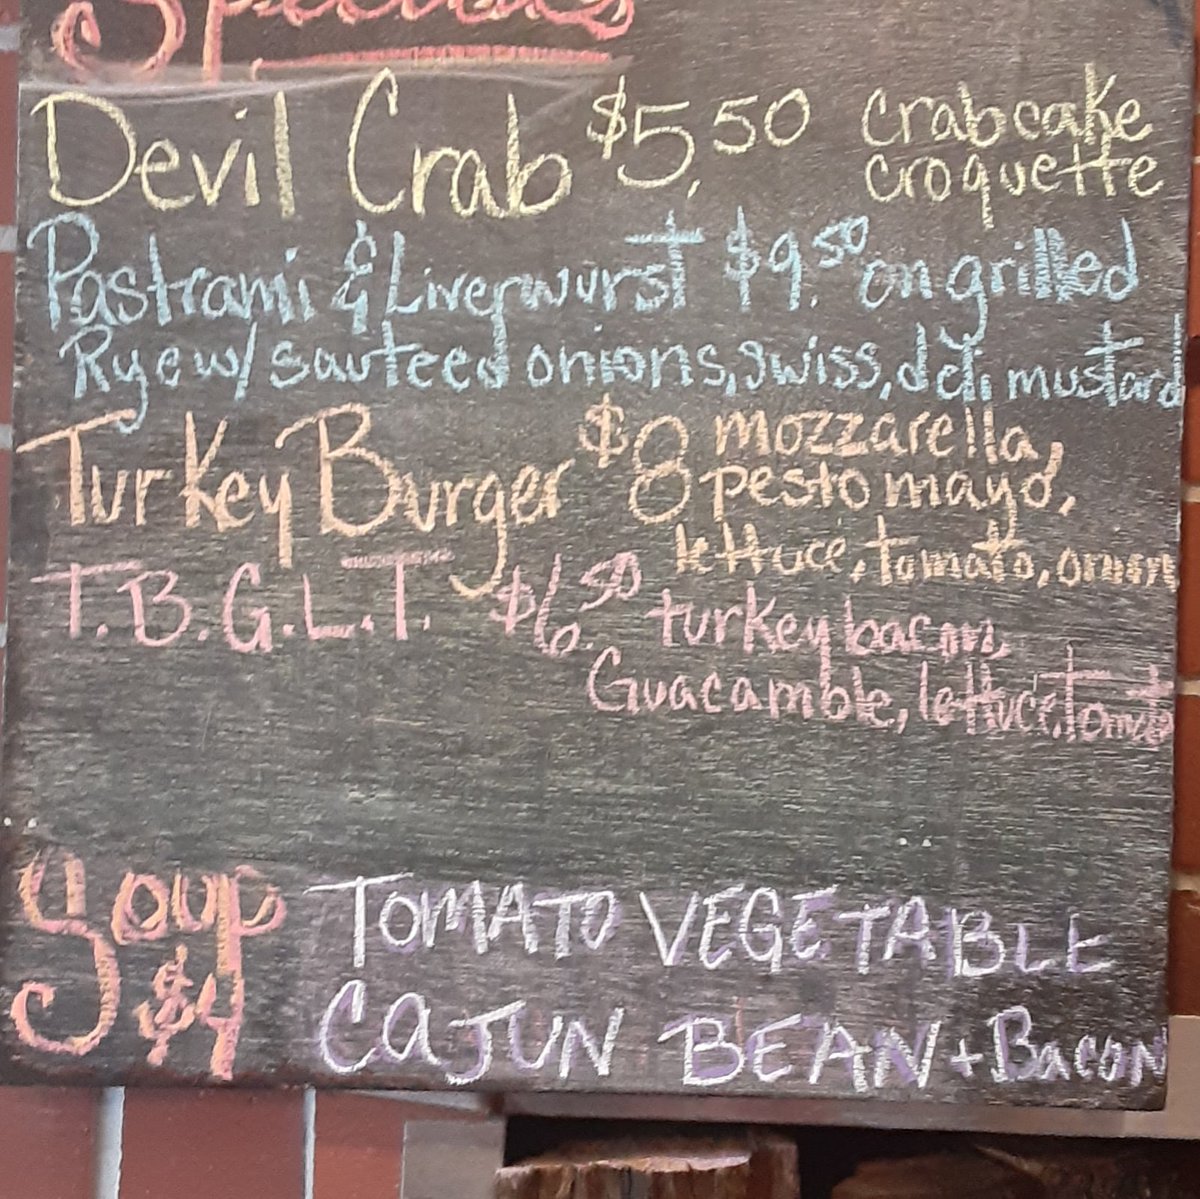 Specials
Devil Crab $5.50 crabcake
croquette
Pastrami & Liverwurst $9.50 on grilled
Rye w/ sauteed onions, swiss, deli mustard
Turkey Burger $8 mozzarella,
pesto mayo,
lettuce, tomato, onion
T.B.G.L.T. $6.50 turkey bacon,
Guacamole, lettuce, tomato
Soup TOMATO VEGETABLE
$4 CAJUN BEAN + BACON